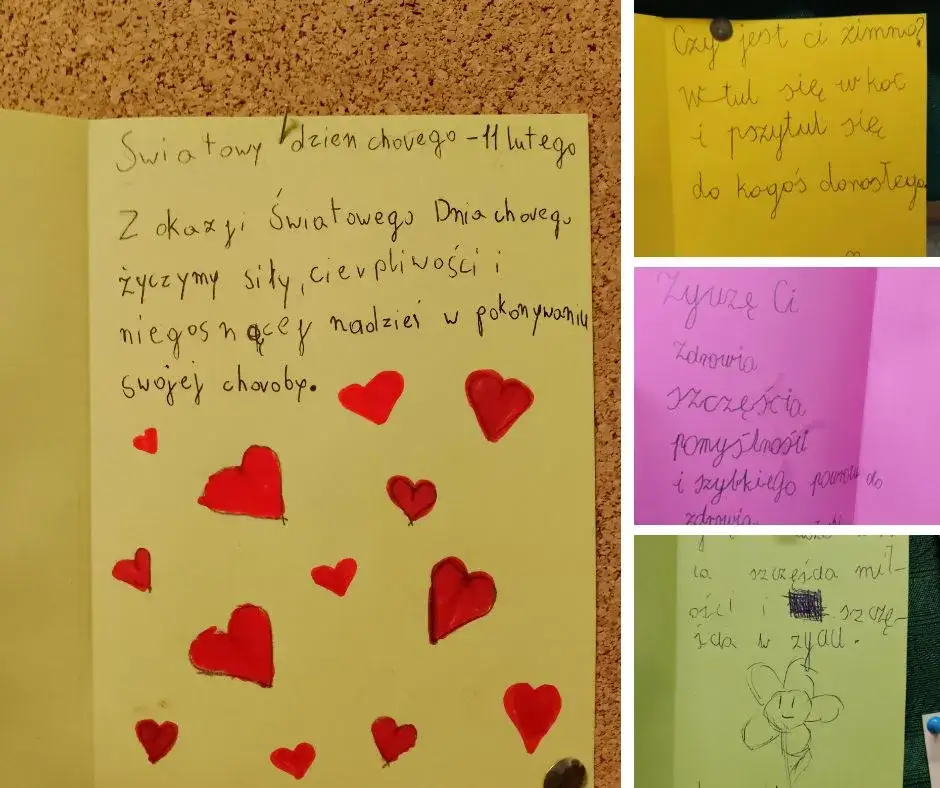 Swiatowy dzien chorego - 11 lutego
Z okazji Światowego Dnia chorego
życzymy siły, cierpliwości i
niegosnącej nadzieś w pokonywaniu
swojej choroby.
Czy jest ci zimno?
W tul się w koc
i pszytul się
do kogoś dorosłego
Zyuzę Ci
zdrowia
szczęścia
pomyślności
i szybkiego powrotu do
zdrowia
ia szczęścia mił-
ości i szczę-
ścia w zyciu.